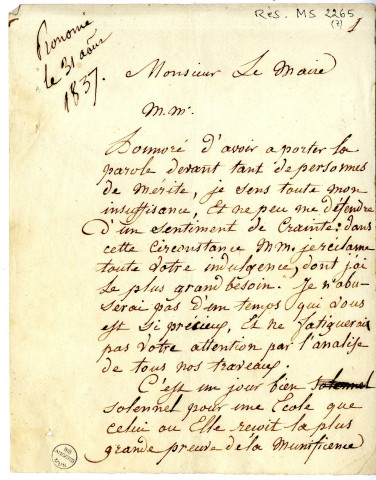 Rés. MS 2265
(7)
1
Prononcé
le 31 août
1837.
Monsieur Le Maire
M.mrs.
Honnoré d'avoir a porter la
parole devant tant de personnes
de Mérite, je sens toute mon
insuffisance, Et ne peu me défendre
D'un sentiment de Crainte: dans
cette Circonstance MM. je réclame
toute Votre indulgence, dont j'ai
Le plus grand besoin. Je n'abu-
serai pas d'un temps qui vous
est Si précieux, Et ne fatiguerai
pas Votre attention par l'analise
de tous nos traveaux.
C'est un jour bien solennel
Solennel pour une Ecole que
celui ou Elle reçoit la plus
grande preuve de la Munificence